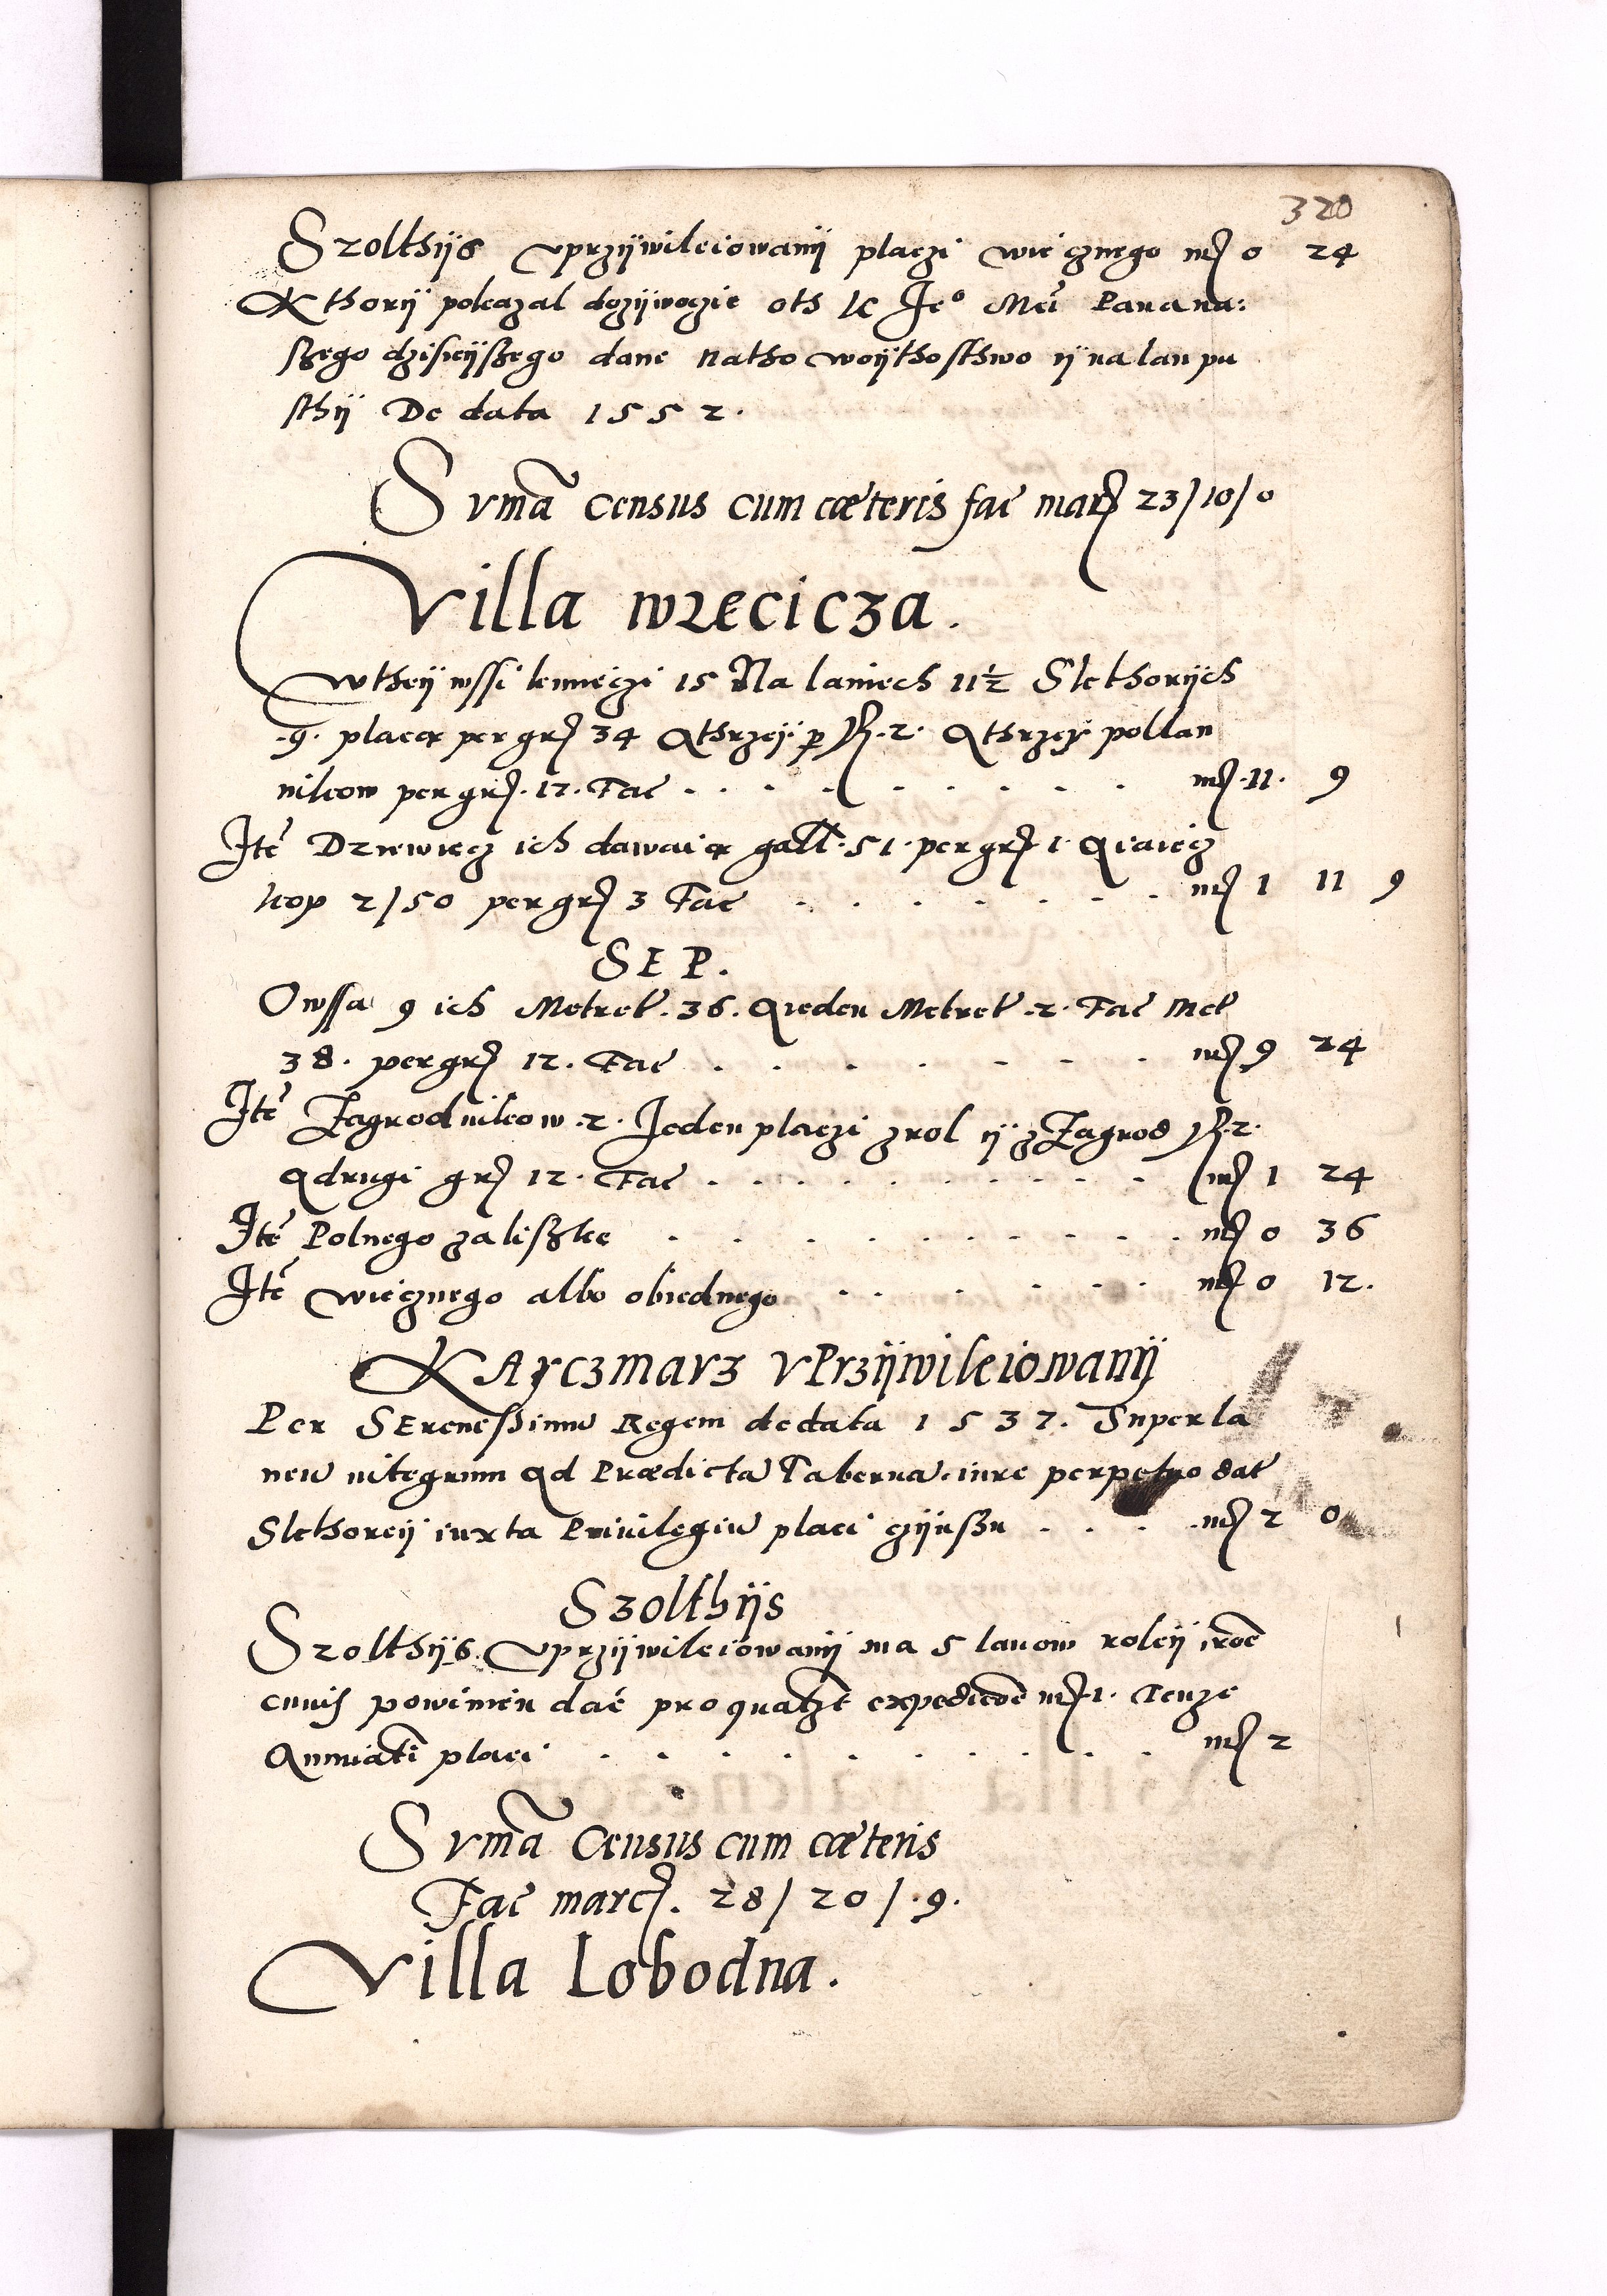 320
Szolthijs vprzijwileiowanij placzi wiecznego mrc 0 24
Kthorij pokazal dozijwoczie oth K Jeº Mci Pana na:
szego dzisieijszego dane natho woijthosthwo ij na lan pu
sthij De data 1552.
Svma census cum cæteris fac marc 23/10/0
Villa wrecicza.
W theij wssi kmieczi 15 Na laniech 11½ Skthorijch
.9. placą per gr 34 Athrzej p fl. 2. Athrzey pollan
nikow per gr. 12. Fac . . . . . . . . mrc. 11. 9
Itē Dziewiecz ich dawaią gall. 51. per gr 1. Aiaiecz
kop 2/50 per gr 3 Fac . . . . . . . mrc 1 11 9
SEP.
Owssa 9 ich Metret. 36. Aieden Metret. 2. Fac Met
38. per gr 12. Fac . . . . . . . mrc 9 24
Itē Zagrodnikow .2. Jeden placzi zrol ij zZagrod fl. 2.
Adrugi gr 12. Fac . . . . . . . . . mrc 1 24
Itē Polnego zaliszke . . . . . . . . . . mrc 0 36
Itē wiecznego albo obiednego . . . . . . mrc 0 12.
KArczmarz vPrzijwileiowanij
Per SErenessimū Regem de data 1537. Super la
neū integrum Ad Prædictā Tabernā iure perpetuo dat
Skthoreij iuxta Privilegiū placi czijnszu . . . mrc 2 0
Szolthijs
Szolthijs vprzijwileiowanij ma 5 lanow roleij
powinien dać pro qualzt expedicōe mrc 1. Tenze
Annuatī placi . . . . . . . . . mrc 2
Svma Census cum cæteris
Fac marc. 28/20/.9.
Villa Lobodna.